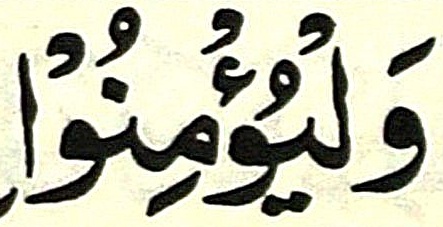 وَلْيُؤْمِنُوْا